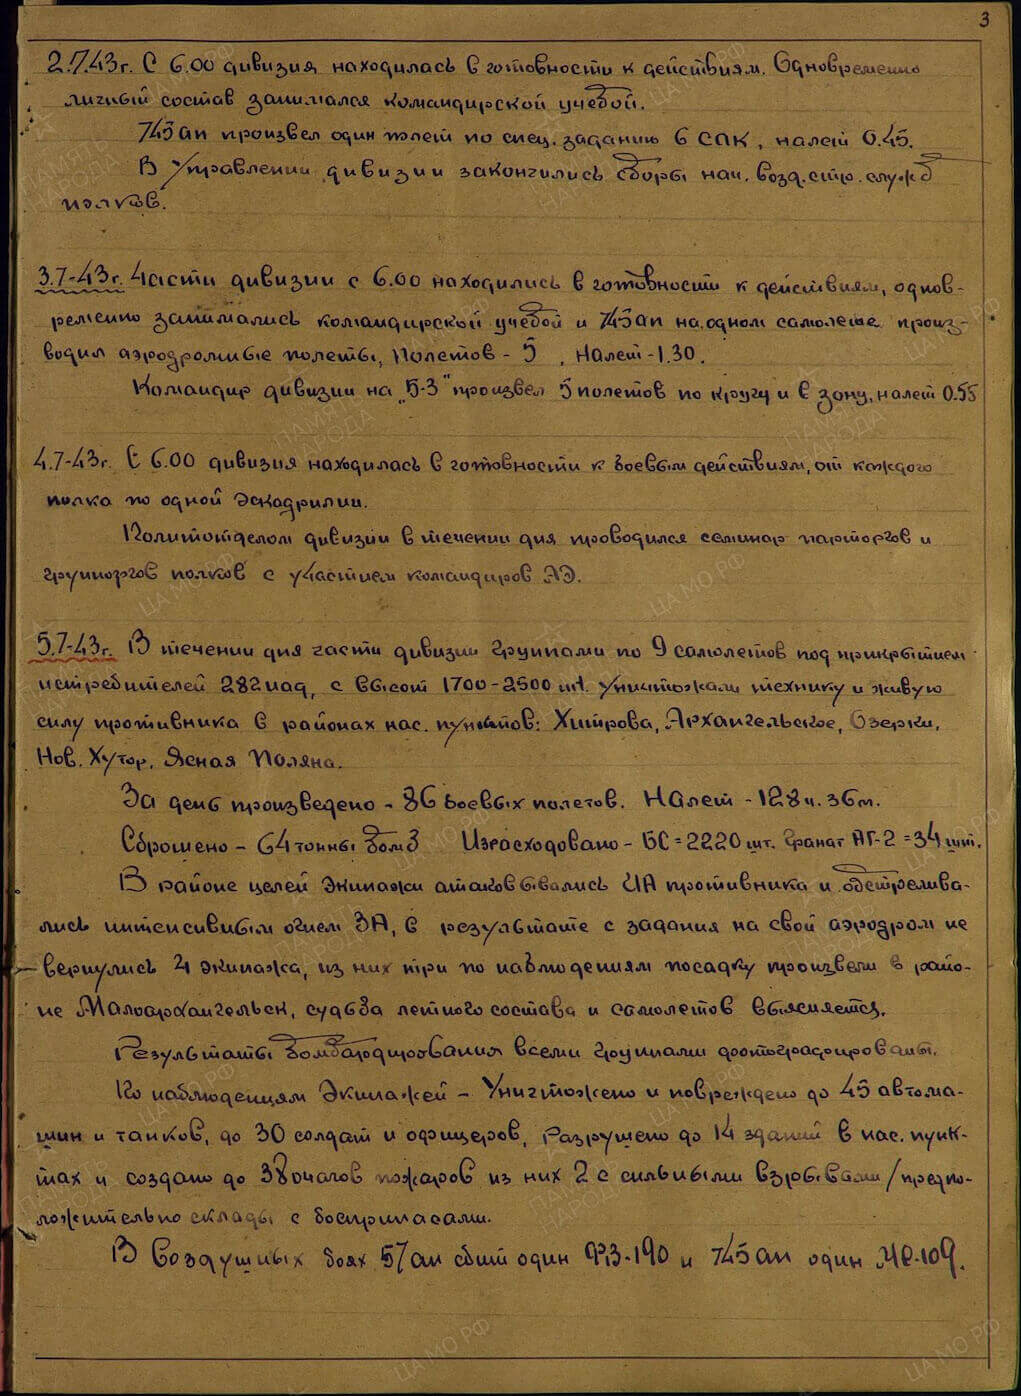 3
2.7.43г. С 6.00 дивизия находилась в готовности к действиям. Одновременно
личный состав занимался командирской учебой.
745 ап произвел один полет по спец. заданию 6 САК, налет 0.45.
В Управлении дивизии закончились сборы нач. возд. стр. служб
полков.
3.7-43г. Части дивизии с 6.00 находились в готовности к действиям, однов-
ременно занимались командирской учебой и 745 ап на одном самолете произ-
водил аэродромные полеты, Полетов - 5, Налет - 1.30.
Командир дивизии на "Б-3" произвел 5 полетов по кругу и в зону, налет 0.55
4.7-43г. С 6.00 дивизия находилась в готовности к боевым действиям, от каждого
полка по одной эскадрилии.
Политотделом дивизии в течении дня проводился семинар парторгов и
групоргов полков с участием командиров АЭ.
5.7-43г. В течении дня части дивизии группами по 9 самолетов под прикрытием
истребителей 282 иад, с высот 1700-2500 mt. уничтожали технику и живую
силу противника в районах нас. пунктов: Хитрова, Архангельское, Озерки,
Нов. Хутор, Ясная Поляна.
За день произведено - 86 боевых полетов. Налет - 128 ч. 36 м.
Сброшено - 64 тонны бомб Израсходовано - БС = 2220 шт. Гранат АГ-2 = 34 шт.
В районе целей экипажи атаковывались ИА противника и обстрелива-
лись интенсивным огнем ЗА, в результате с задания на свой аэродром не
вернулись 4 экипажа, из них три по наблюдениям посадку произвели в райо-
не Малоархангельск, судьба летного состава и самолетов выясняется.
Результаты бомбардирования всеми группами фотографированы.
По наблюдениям Экипажей - Уничтожено и повреждено до 45 автома-
шин и танков, до 30 солдат и офицеров, Разрушено до 14 зданий в нас. пунк-
тах и создано до 38 очагов пожаров из них 2 с сильными взрывами /предпо-
ложительно склады с боеприпасами.
В Воздушных боях 57 ап сбит один ФВ-190 и 745 ап один Ме-109.
ЦА МО РФ
ПАМЯТЬ НАРОДА